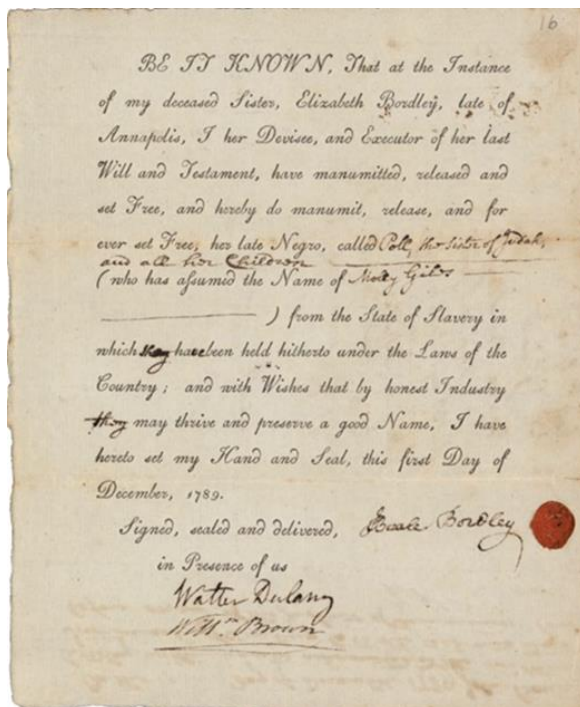 16
BE IT KNOWN, That at the Instance
of my deceased Sister, Elizabeth Bordley, late of
Annapolis, I her Devisee, and Executor of her last
Will and Testament, have manumitted, released and
set Free, and hereby do manumit, release, and for
ever set Free, her late Negro, called Poll, the Sister of Judah,
and all her Children
(who has assumed the Name of Molly Giles
) from the State of Slavery in
which they have been held hitherto under the Laws of the
Country; and with Wishes that by honest Industry
they may thrive and preserve a good Name, I have
hereto set my Hand and Seal, this first Day of
December, 1789.
Signed, sealed and delivered,
Beale Bordley
in Presence of us
Walter Dulany
Willm Brown